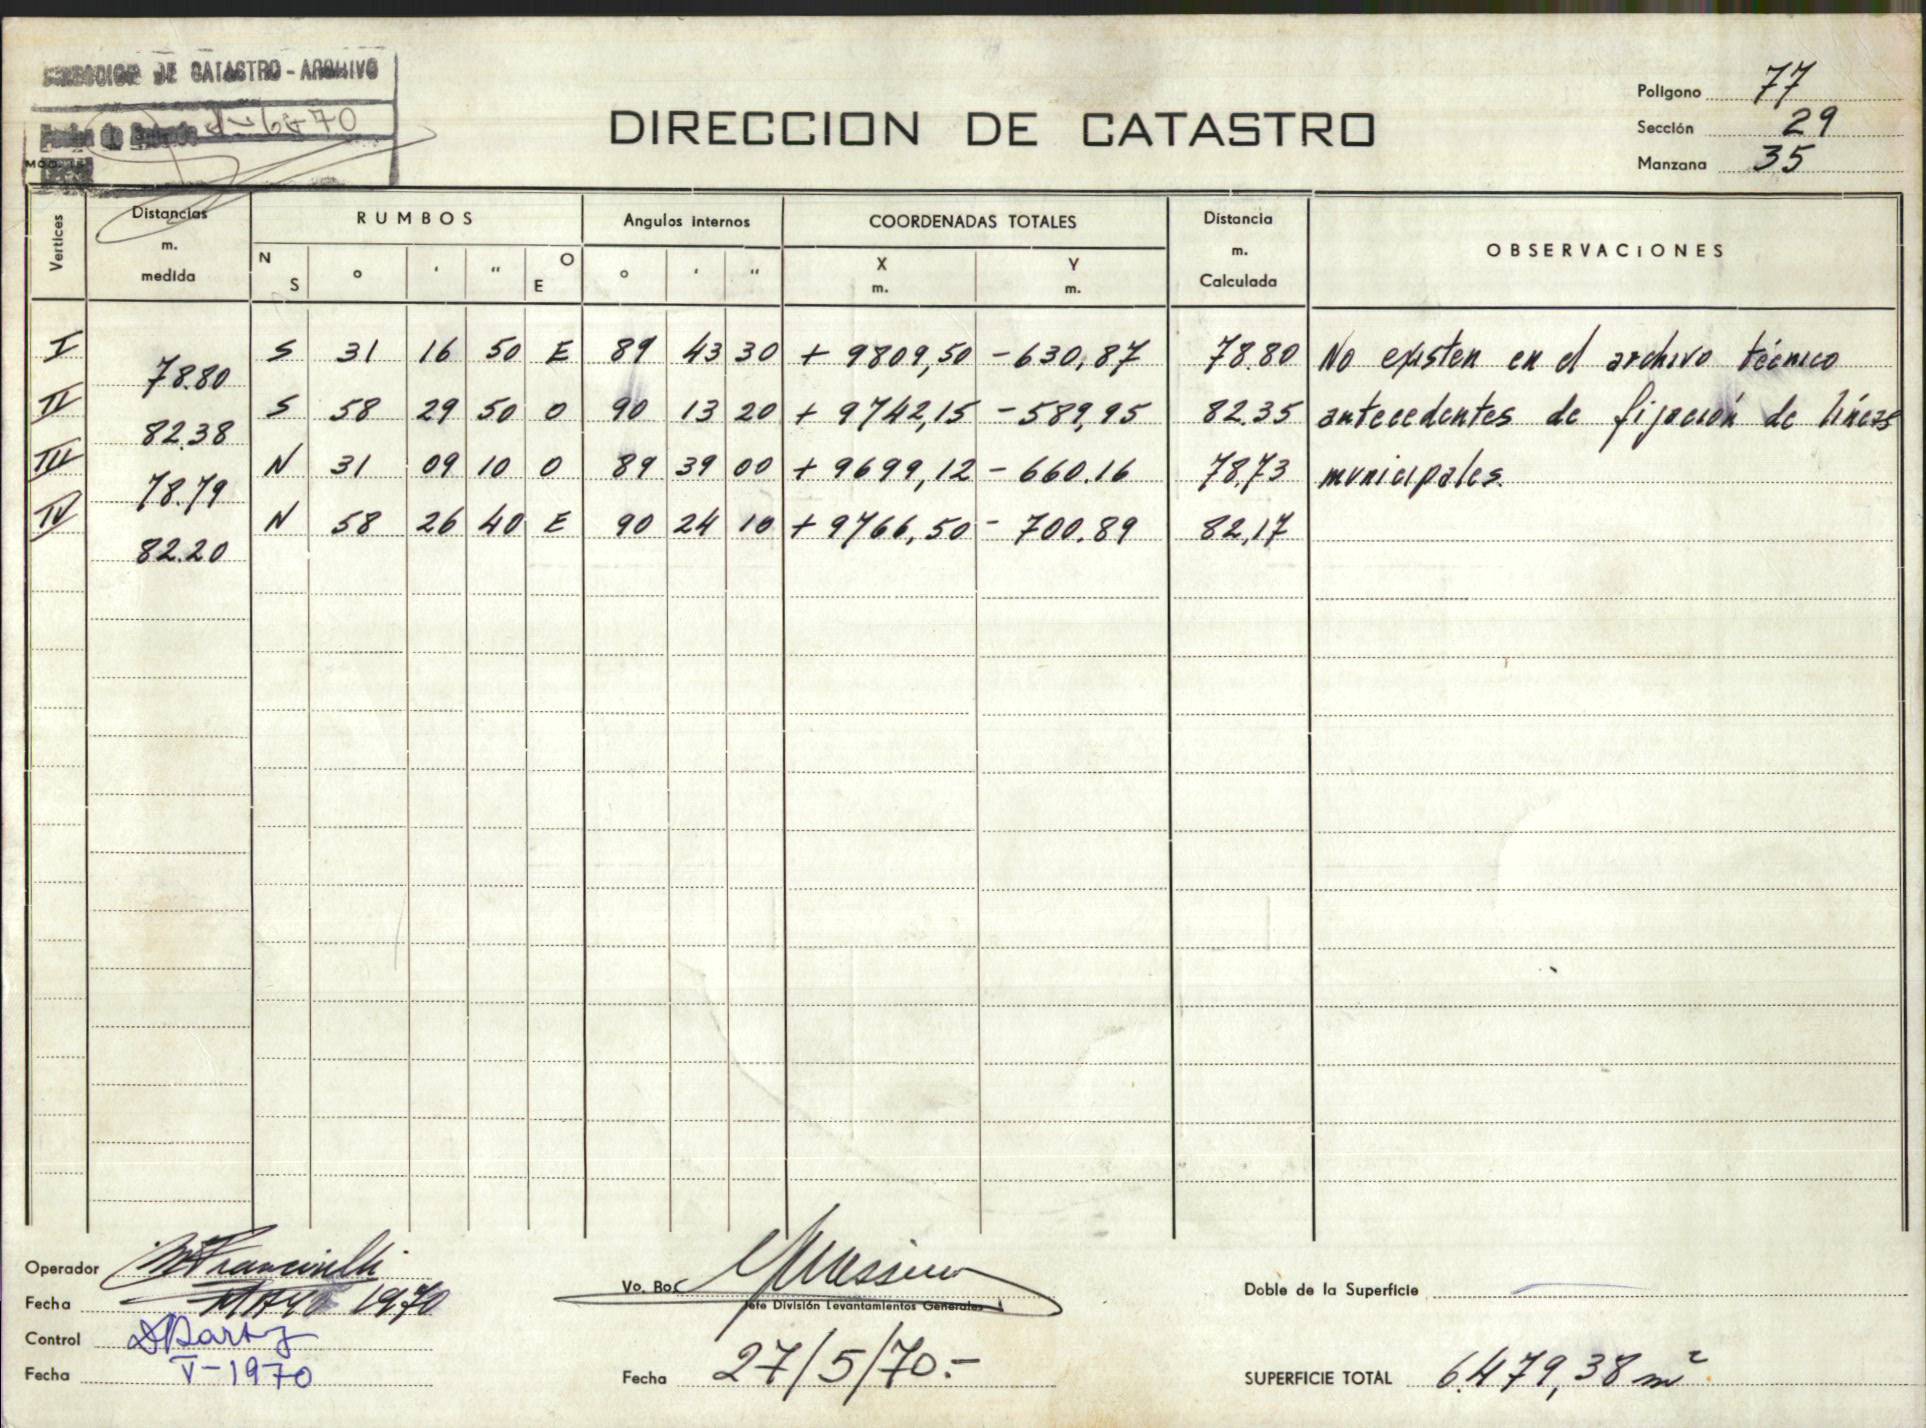 DIRECCION DE CATASTRO - ARCHIVO
Fecha de Entrada 2-6-70
DIRECCION DE CATASTRO
Polígono 77
Sección 29
Manzana 35
Vertices
Distancias m. medida
RUMBOS
Angulos internos
COORDENADAS TOTALES
Distancia m. Calculada
OBSERVACIONES
N S ° ' " O E ° ' " X m. Y m.
I S 31 16 50 E 89 43 30 + 9809,50 - 630,87 78.80 No existen en el archivo técnico
78.80
II S 58 29 50 O 90 13 20 + 9742,15 - 589,95 82.35 antecedentes de fijación de líneas
82.38
III N 31 09 10 O 89 39 00 + 9699,12 - 660.16 78,73 municipales.
78.79
IV N 58 26 40 E 90 24 10 + 9766,50 - 700.89 82,17
82.20
Operador
Fecha MAYO 1970
Control
Fecha V-1970
Vo. Bo.
Jefe División Levantamientos Generales
Fecha 27/5/70.-
Doble de la Superficie
SUPERFICIE TOTAL 6.479,38 m²